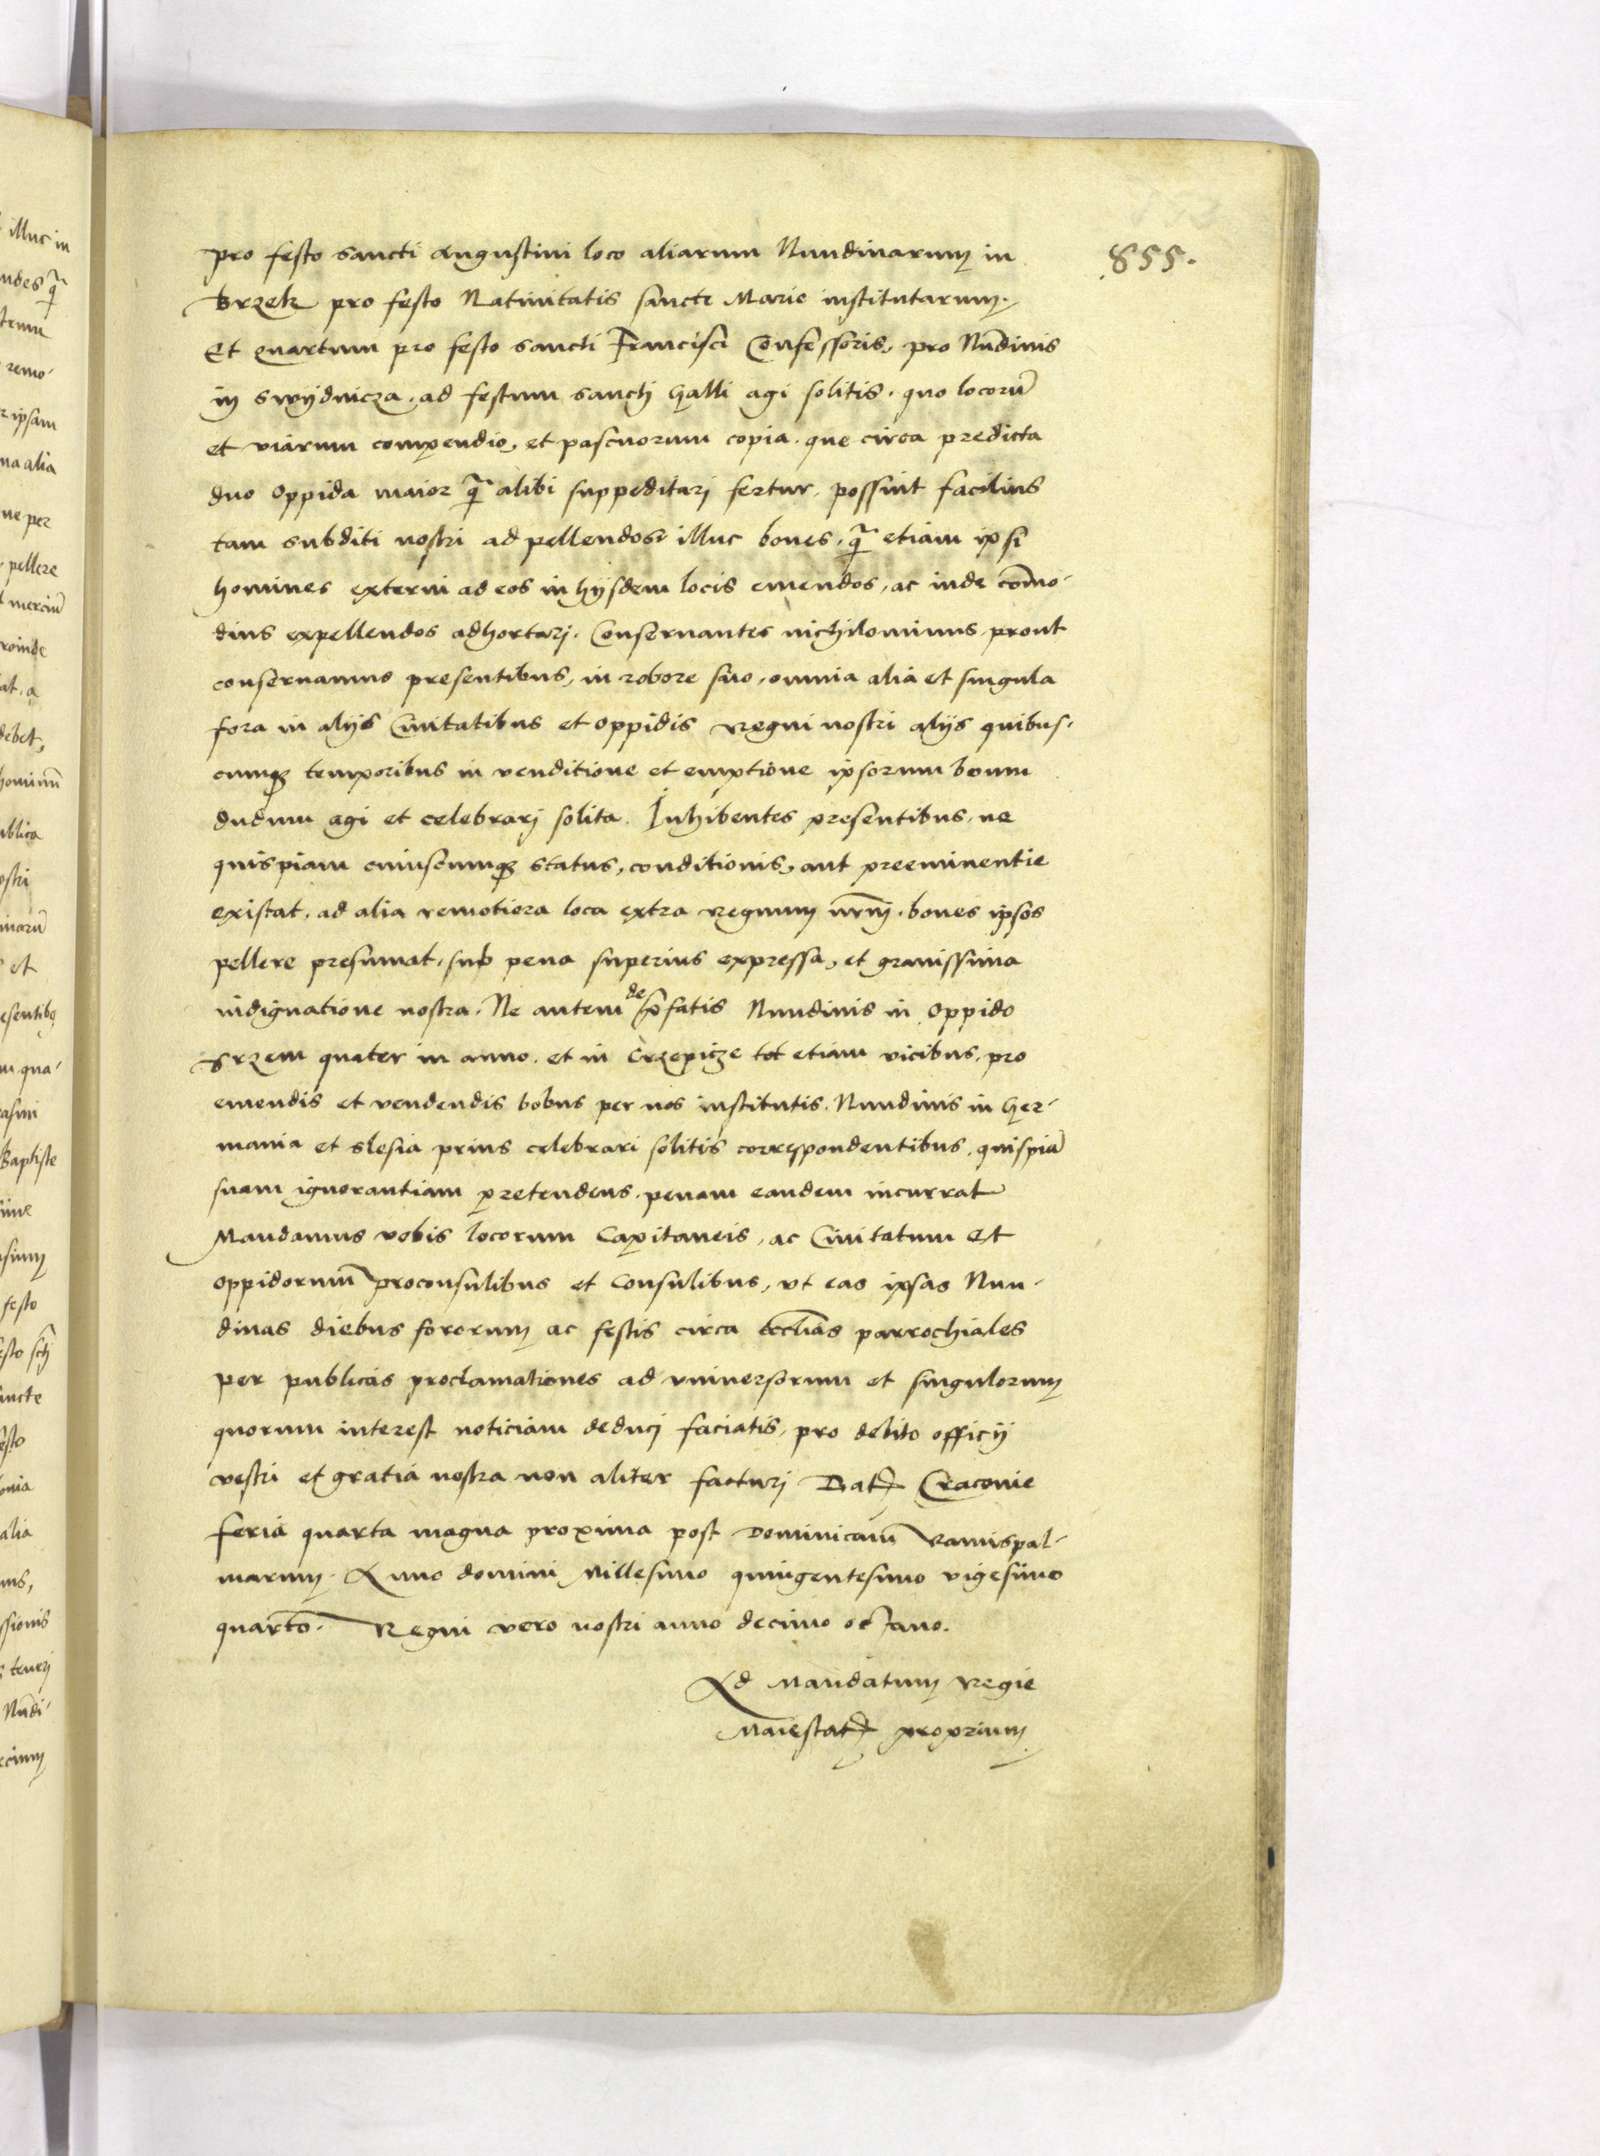 855.
pro festo sancti Augustini loco aliarum Nundinarum in
Brzek pro festo Nativitatis sancte Marie institutarum.
Et quartum pro festo sancti Francisci Confessoris, pro Nūdinis
in Swydnicza, ad festum sancti Galli agi solitis. quo locorū
et viarum compendio, et pascuorum copia. que circa predicta
duo Oppida maior q̄ alibi suppeditari fertur, possint facilius
tam subditi nostri ad pellendos illuc boues, q̄ etiam ipsi
homines externi ad eos in hijsdem locis emendos, ac inde cōmo-
dius expellendos adhortari. Conseruantes nichilominus, prout
conseruamus presentibus, in robore suo, omnia alia et singula
fora in alijs Ciuitatibus et Oppidis Regni nostri alijs quibus-
cumqz temporibus in venditione et emptione ipsorum boum
dudum agi et celebrari solita. Inhibentes presentibus, ne
quispiam cuiuscumqz status, conditionis, aut preeminentie
existat, ad alia remotiora loca extra Regnum nrm̄, boues ipsos
pellere presumat, sub pena superius expressa, et grauissima
indignatione nostra. Ne autem de p̄fatis Nundinis in Oppido
Srzem quater in anno, et in Crzepicze tot etiam vicibus, pro
emendis et vendendis bobus per nos institutis, Nundinis in Ger-
mania et Slesia prius celebrari solitis correspondentibus, quispiā
suam ignorantiam pretendens, penam eandem incurrat
Mandamus vobis locorum Capitaneis, ac Ciuitatum Et
oppidorum proconsulibus et Consulibus, vt eas ipsas Nun-
dinas diebus fororum ac festis circa eccl̄ias parrochiales
per publicas proclamationes ad vniuersorum et singulorum
quorum interest noticiam deduci faciatis, pro debito officij
vestri et gratia nostra non aliter facturi Dat Cracouie
feria quarta magna proxima post Dominicam Ramispal-
marum. Anno domini Millesimo quingentesimo vigesimo
quarto. Regni vero nostri anno decimo octauo.
Ad Mandatum Regie
Maiestat proprium